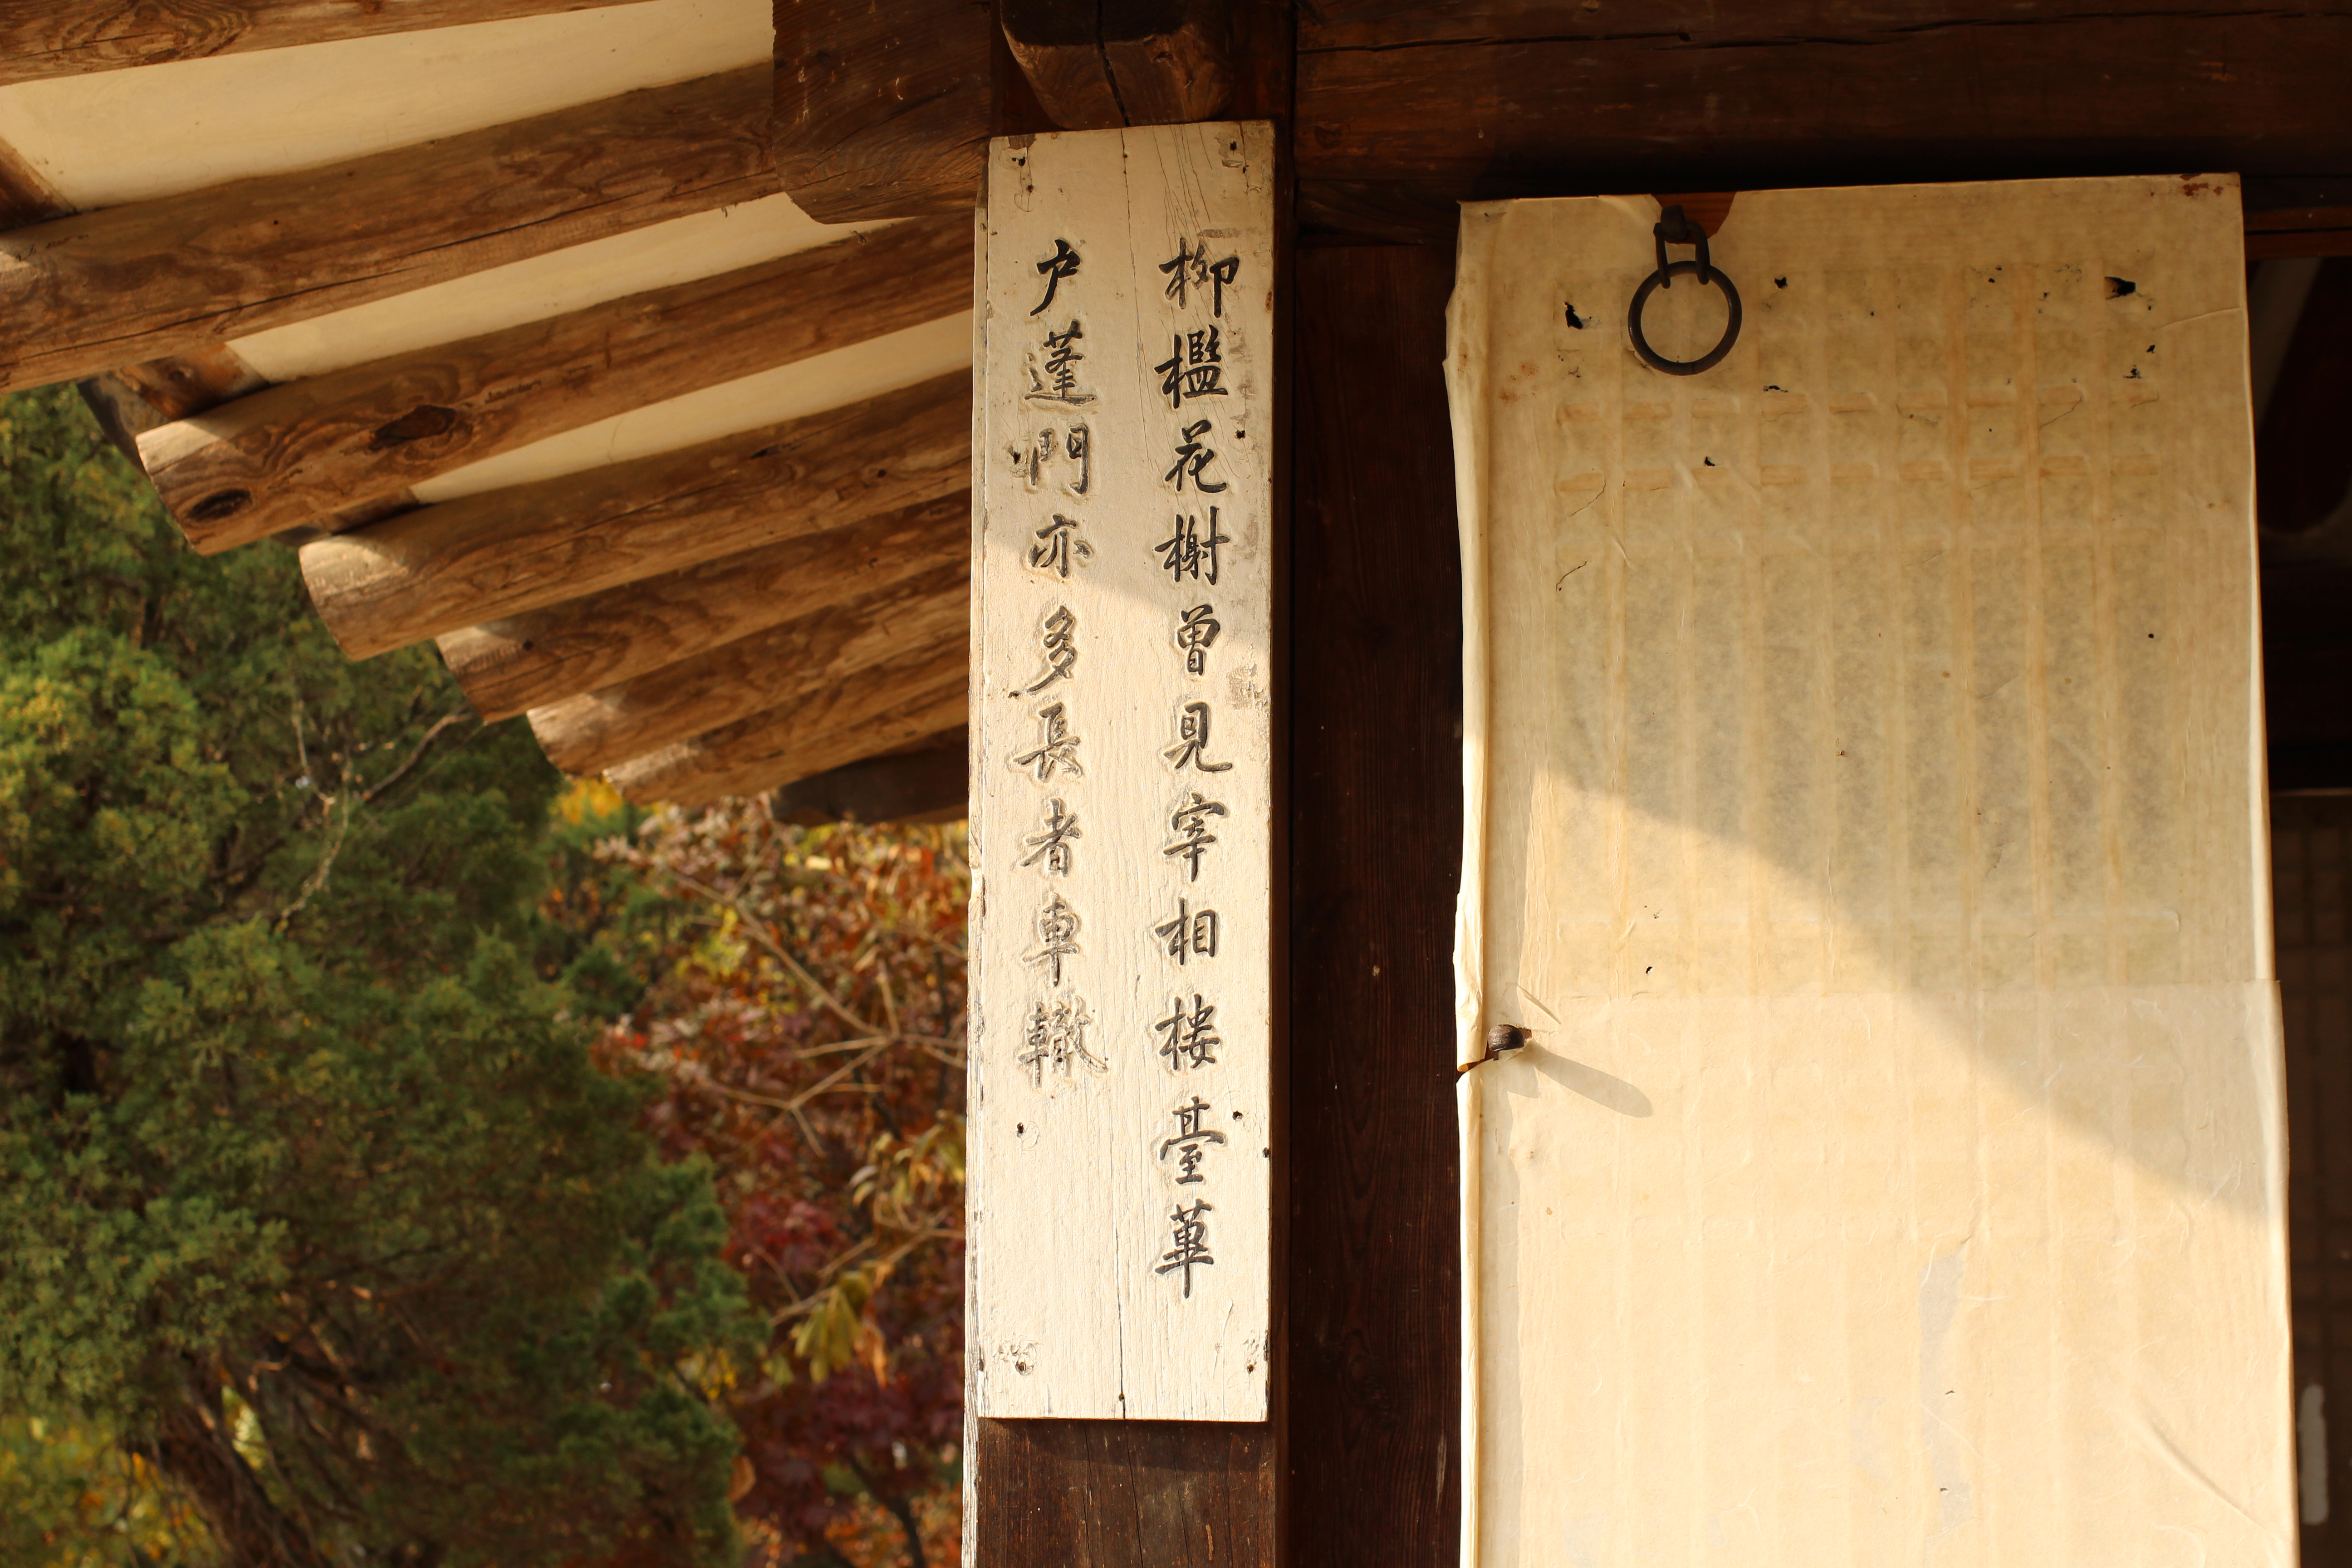 柳檻花榭曾見宰相楼臺蓽
户蓬門亦多長者車轍